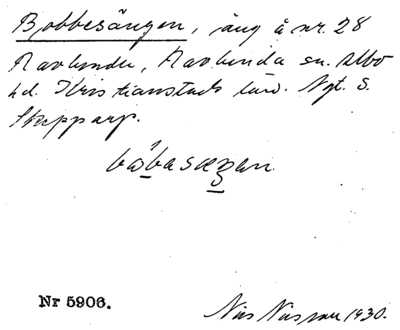 Bobbesängen, äng å nr. 28
Ravlunda, Ravlunda sn. Albo
hd. Kristianstads län. Ngt. S.
Skepparp.
Nr 5906.
Nils Nilsson 1930.